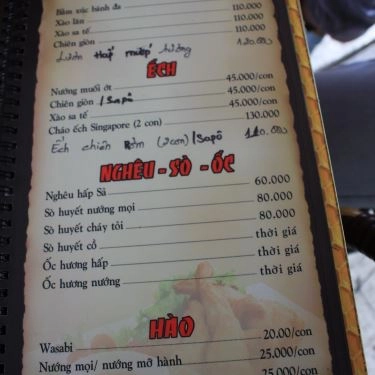 Bằm xúc bánh đa 110.000
Xào lăn 110.000
Xào sa tế 110.000
Chiên giòn 120.000
Lươn Hấp mướp hương
ẾCH
Nướng muối ớt 45.000/con
Chiên giòn /Sapô 45.000/con
Xào sa tế 45.000/con
Cháo ếch Singapore (2 con) 130.000
Ếch chiên (2con)/Sapô 110.000
NGHÊU - SÒ - ỐC
Nghêu hấp Sả 60.000
Sò huyết nướng mọi 80.000
Sò huyết cháy tỏi 80.000
Sò huyết cồ thời giá
Ốc hương hấp thời giá
Ốc hương nướng thời giá
HÀO
Wasabi 20.00/con
Nướng mọi/ nướng mỡ hành 25.000/con
25.000/con